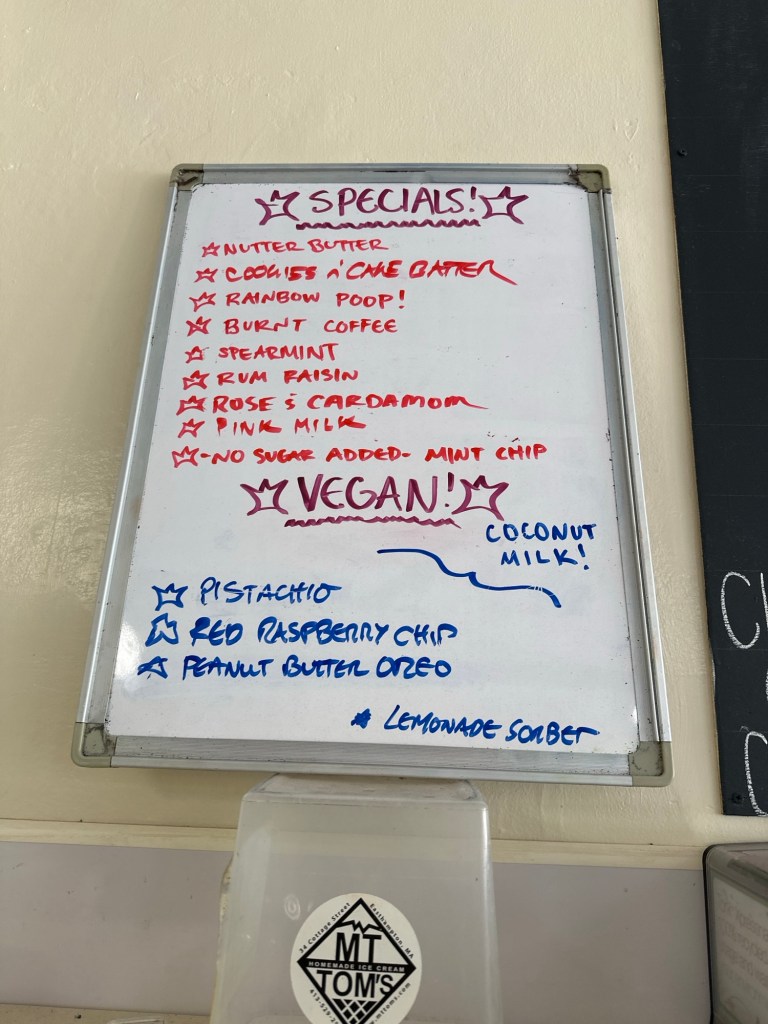 SPECIALS!
NUTTER BUTTER
COOKIES n' CAKE BATTER
RAINBOW POOP!
BURNT COFFEE
SPEARMINT
RUM RAISIN
ROSE & CARDAMOM
PINK MILK
-NO SUGAR ADDED- MINT CHIP
VEGAN!
COCONUT
MILK!
PISTACHIO
RED RASPBERRY CHIP
PEANUT BUTTER OREO
* LEMONADE SORBET
34 Cottage Street Easthampton, MA
MT
HOMEMADE ICE CREAM
TOM'S